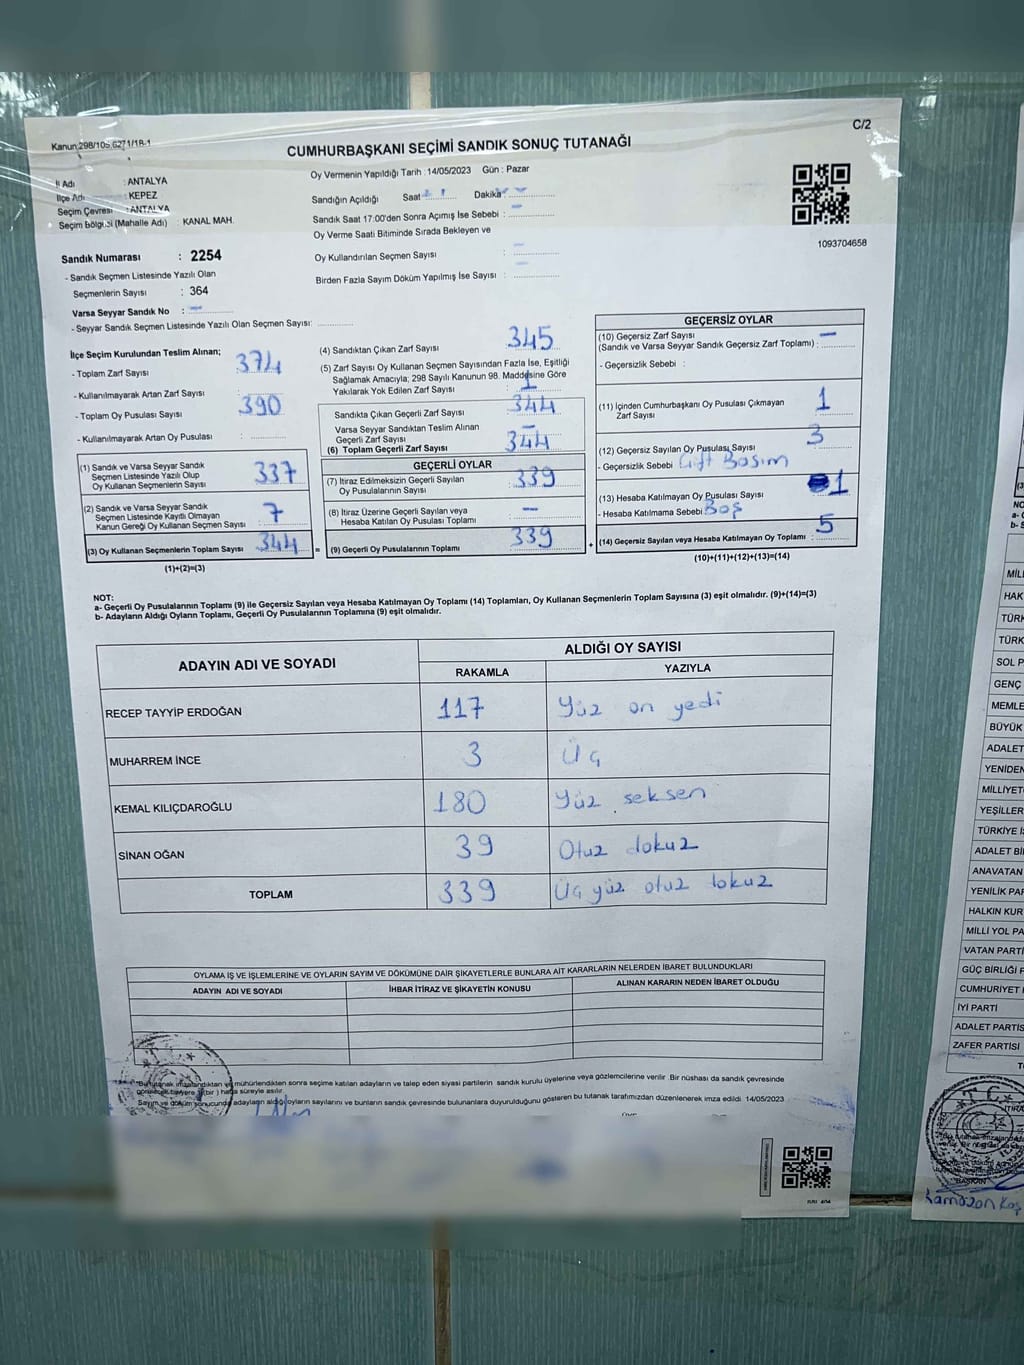 Kanun 298/105,6271/18-1
C/2
CUMHURBAŞKANI SEÇİMİ SANDIK SONUÇ TUTANAĞI
İl Adı : ANTALYA
İlçe Adı : KEPEZ
Seçim Çevresi : ANTALYA
Seçim bölgesi (Mahalle Adı) : KANAL MAH.
Oy Vermenin Yapıldığı Tarih : 14/05/2023 Gün : Pazar
Sandığın Açıldığı Saat Dakika
Sandık Saat 17:00'den Sonra Açımış İse Sebebi : -
Oy Verme Saati Bitiminde Sırada Bekleyen ve
Oy Kullandırılan Seçmen Sayısı : -
Birden Fazla Sayım Döküm Yapılmış İse Sayısı : -
1093704658
Sandık Numarası : 2254
- Sandık Seçmen Listesinde Yazılı Olan
Seçmenlerin Sayısı : 364
Varsa Seyyar Sandık No : -
- Seyyar Sandık Seçmen Listesinde Yazılı Olan Seçmen Sayısı:
İlçe Seçim Kurulundan Teslim Alınan;
- Toplam Zarf Sayısı 374
- Kullanılmayarak Artan Zarf Sayısı
- Toplam Oy Pusulası Sayısı 390
- Kullanılmayarak Artan Oy Pusulası :
(1) Sandık ve Varsa Seyyar Sandık
Seçmen Listesinde Yazılı Olup
Oy Kullanan Seçmenlerin Sayısı 337
(2) Sandık ve Varsa Seyyar Sandık
Seçmen Listesinde Kayıtlı Olmayan
Kanun Gereği Oy Kullanan Seçmen Sayısı 7
(3) Oy Kullanan Seçmenlerin Toplam Sayısı 344
(1)+(2)=(3)
(4) Sandıktan Çıkan Zarf Sayısı 345
(5) Zarf Sayısı Oy Kullanan Seçmen Sayısından Fazla İse, Eşitliği
Sağlamak Amacıyla; 298 Sayılı Kanunun 98. Maddesine Göre
Yakılarak Yok Edilen Zarf Sayısı : 1
Sandıkta Çıkan Geçerli Zarf Sayısı 344
Varsa Seyyar Sandıktan Teslim Alınan
Geçerli Zarf Sayısı -
(6) Toplam Geçerli Zarf Sayısı 344
GEÇERLİ OYLAR
(7) İtiraz Edilmeksizin Geçerli Sayılan
Oy Pusulalarının Sayısı 339
(8) İtiraz Üzerine Geçerli Sayılan veya
Hesaba Katılan Oy Pusulası Toplamı -
= (9) Geçerli Oy Pusulalarının Toplamı 339 +
GEÇERSİZ OYLAR
(10) Geçersiz Zarf Sayısı
(Sandık ve Varsa Seyyar Sandık Geçersiz Zarf Toplamı) : -
- Geçersizlik Sebebi :
(11) İçinden Cumhurbaşkanı Oy Pusulası Çıkmayan
Zarf Sayısı 1
(12) Geçersiz Sayılan Oy Pusulası Sayısı 3
- Geçersizlik Sebebi Çift Basım
(13) Hesaba Katılmayan Oy Pusulası Sayısı 1
- Hesaba Katılmama Sebebi Boş
(14) Geçersiz Sayılan veya Hesaba Katılmayan Oy Toplamı 5
(10)+(11)+(12)+(13)=(14)
NOT:
a- Geçerli Oy Pusulalarının Toplamı (9) ile Geçersiz Sayılan veya Hesaba Katılmayan Oy Toplamı (14) Toplamları, Oy Kullanan Seçmenlerin Toplam Sayısına (3) eşit olmalıdır. (9)+(14)=(3)
b- Adayların Aldığı Oyların Toplamı, Geçerli Oy Pusulalarının Toplamına (9) eşit olmalıdır.
ADAYIN ADI VE SOYADI
ALDIĞI OY SAYISI
RAKAMLA YAZIYLA
RECEP TAYYİP ERDOĞAN 117 Yüz on yedi
MUHARREM İNCE 3 Üç
KEMAL KILIÇDAROĞLU 180 Yüz seksen
SİNAN OĞAN 39 Otuz dokuz
TOPLAM 339 Üç yüz otuz dokuz
OYLAMA İŞ VE İŞLEMLERİNE VE OYLARIN SAYIM VE DÖKÜMÜNE DAİR ŞİKAYETLERLE BUNLARA AİT KARARLARIN NELERDEN İBARET BULUNDUKLARI
ADAYIN ADI VE SOYADI İHBAR İTİRAZ VE ŞİKAYETİN KONUSU ALINAN KARARIN NEDEN İBARET OLDUĞU
Bu tutanak imzalandıktan ve mühürlendikten sonra seçime katılan adayların ve talep eden siyasi partilerin sandık kurulu üyelerine veya gözlemcilerine verilir. Bir nüshası da sandık çevresinde
Sayım ve döküm sonucunda adayların aldığı oyların sayılarını ve bunların sandık çevresinde bulunanlara duyurulduğunu gösteren bu tutanak tarafımızdan düzenlenerek imza edildi. 14/05/2023
NOT
MİLL
HAK
TÜRK
TÜRK
SOL P
GENÇ
MEMLE
BÜYÜK
ADALET
YENİDEN
MİLLİYET
YEŞİLLER
TÜRKİYE İ
ADALET Bİ
ANAVATAN
YENİLİK PAR
HALKIN KUR
MİLLİ YOL PA
VATAN PARTİ
GÜÇ BİRLİĞİ P
CUMHURİYET
İYİ PARTİ
ADALET PARTİS
ZAFER PARTİSİ
BAŞKAN
Ramazan Koş